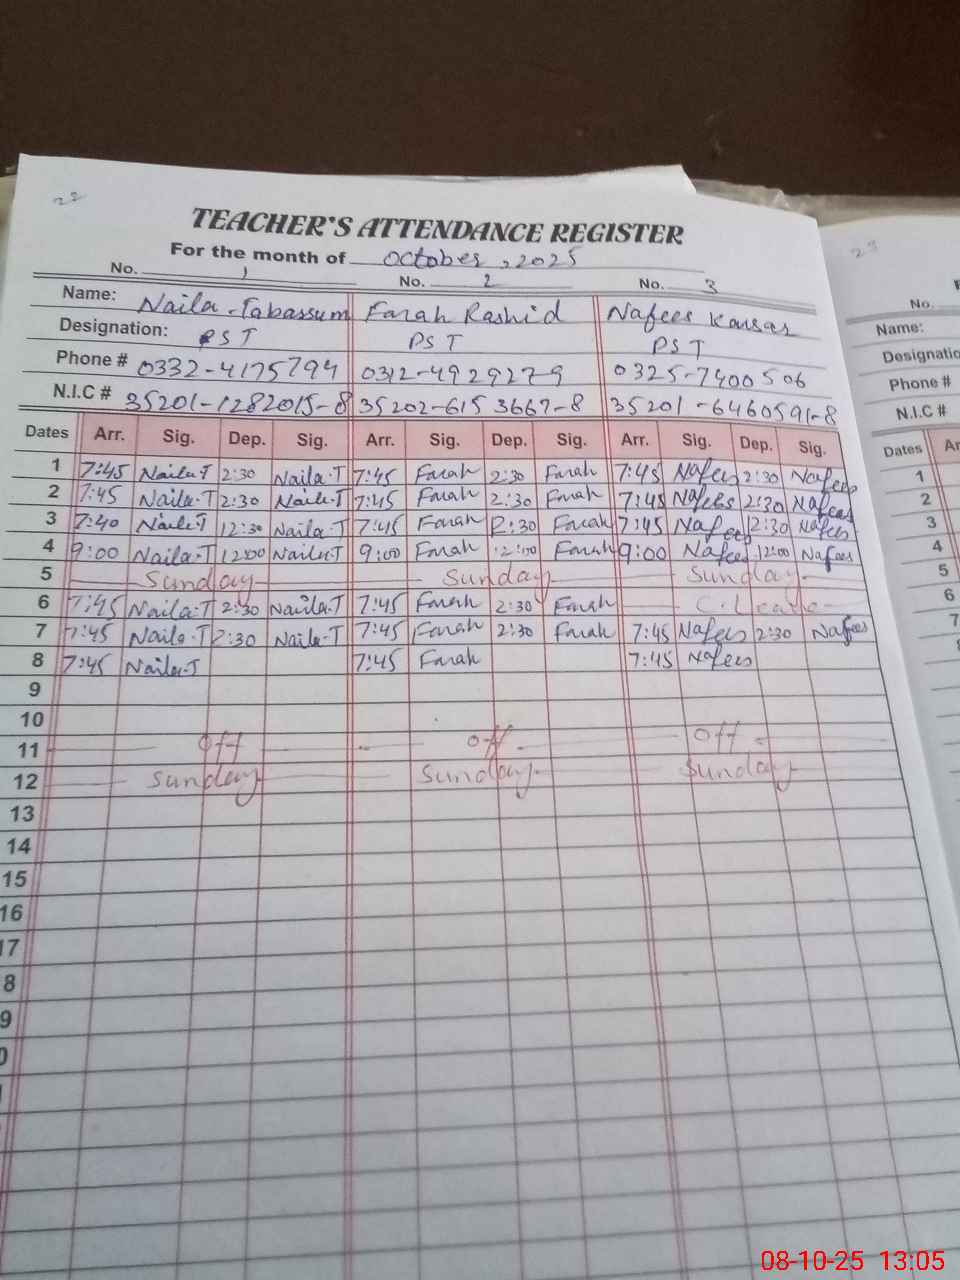 22
TEACHER'S ATTENDANCE REGISTER
For the month of October, 2025
No. 1 No. 2 No. 3
Name: Naila-Tabassum Farah Rashid Nafees Kausar
Designation: PST PST PST
Phone # 0332-4175794 0312-4929279 0325-7400506
N.I.C # 35201-1282015-8 35202-6153667-8 35201-6460591-8
Dates Arr. Sig. Dep. Sig. Arr. Sig. Dep. Sig. Arr. Sig. Dep. Sig.
1 7:45 Naila-T 2:30 Naila-T 7:45 Farah 2:30 Farah 7:45 Nafees 2:30 Nafees
2 7:45 Naila-T 2:30 Naila-T 7:45 Farah 2:30 Farah 7:45 Nafees 2:30 Nafees
3 7:40 Naila-T 12:30 Naila-T 7:45 Farah 12:30 Farah 7:45 Nafees 12:30 Nafees
4 9:00 Naila-T 12:00 Naila-T 9:00 Farah 12:00 Farah 9:00 Nafees 12:00 Nafees
5 Sunday Sunday Sunday
6 7:45 Naila-T 2:30 Naila-T 7:45 Farah 2:30 Farah C.Leave
7 7:45 Naila-T 2:30 Naila-T 7:45 Farah 2:30 Farah 7:45 Nafees 2:30 Nafees
8 7:45 Naila-T 7:45 Farah 7:45 Nafees
9
10
11 off off off
12 Sunday Sunday Sunday
13
14
15
16
17
8
9
0
23
No.
Name:
Designatio
Phone #
N.I.C #
Dates Ar
1
2
3
4
5
6
7
08-10-25 13:05